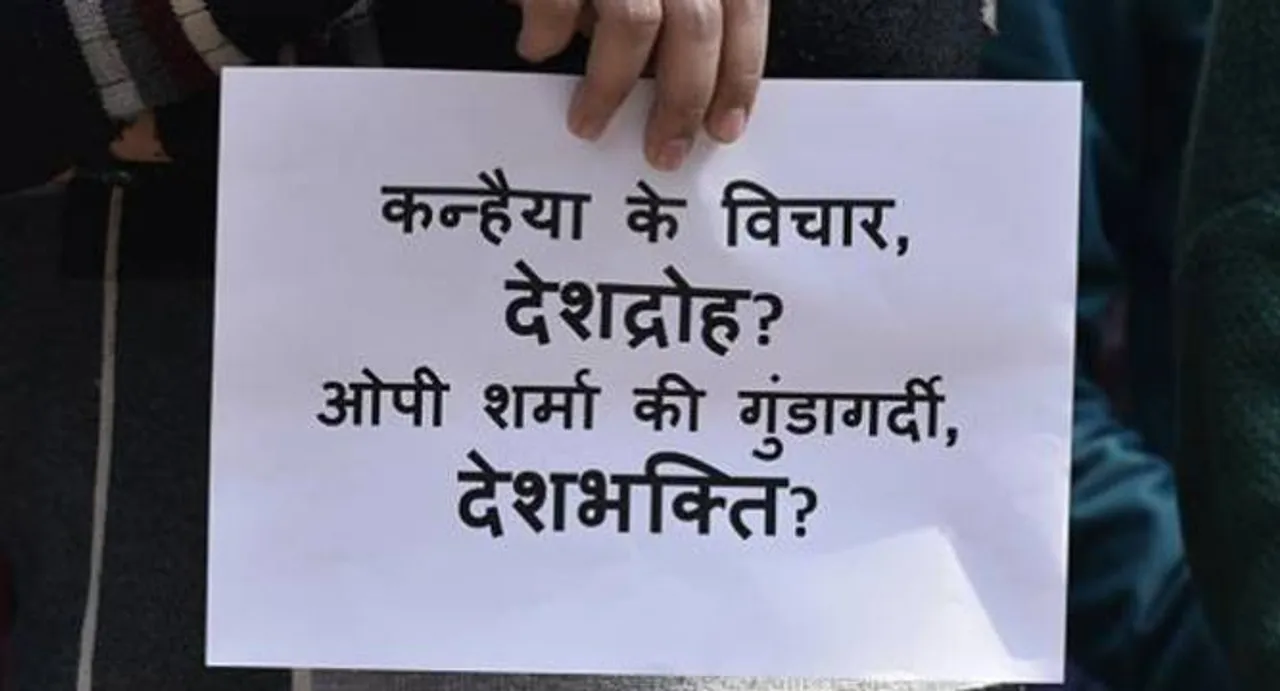 कन्हैया के विचार,
देशद्रोह?
ओपी शर्मा की गुंडागर्दी,
देशभक्ति?